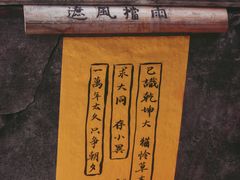 遮風擋雨
已識乾坤大 猶怜草
求大同 存小異
一萬年太久只争朝夕